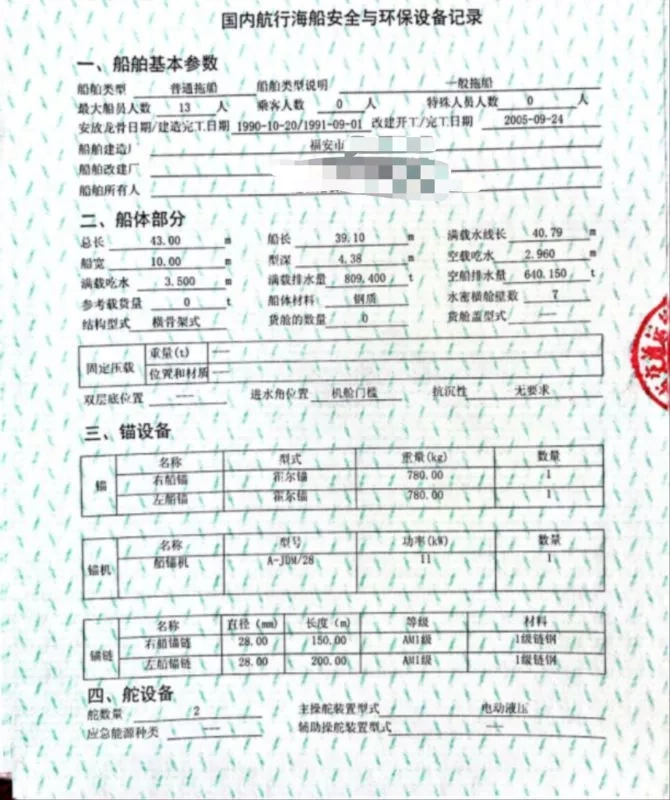 国内航行海船安全与环保设备记录
一、船舶基本参数
船舶类型 普通拖船 船舶类型说明 一般拖船
最大船员人数 13 人 乘客人数 0 人 特殊人员人数 0 人
安放龙骨日期/建造完工日期 1990-10-20/1991-09-01 改建开工/完工日期 2005-09-24
船舶建造厂 福安市
船舶改建厂
船舶所有人
二、船体部分
总长 43.00 m 船长 39.10 m 满载水线长 40.79 m
船宽 10.00 m 型深 4.38 m 空载吃水 2.960 m
满载吃水 3.500 m 满载排水量 809.400 t 空船排水量 640.150 t
参考载货量 0 t 船体材料 钢质 水密横舱壁数 7
结构型式 横骨架式 货舱的数量 0 货舱盖型式 ——
固定压载 重量(t) ——
位置和材质 ——
双层底位置 —— 进水角位置 机舱门槛 抗沉性 无要求
三、锚设备
锚 名称 型式 重量(kg) 数量
右艏锚 霍尔锚 780.00 1
左艏锚 霍尔锚 780.00 1
锚机 名称 型号 功率(kW) 数量
艏锚机 A-JDM/28 11 1
锚链 名称 直径(mm) 长度(m) 等级 材料
右艏锚链 28.00 150.00 AM1级 1级链钢
左艏锚链 28.00 200.00 AM1级 1级链钢
四、舵设备
舵数量 2 主操舵装置型式 电动液压
应急能源种类 —— 辅助操舵装置型式 ——